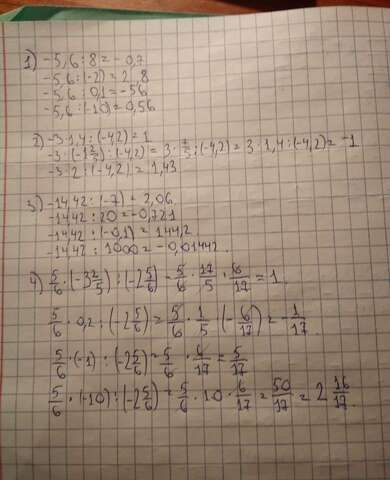 1) -5,6 : 8 = -0,7
-5,6 : (-2) = 2,8
-5,6 : 0,1 = -56
-5,6 : (-10) = 0,56
2) -3·1,4 : (-4,2) = 1
-3·(-1 2/5) : (-4,2) = 3 · 7/5 : (-4,2) = 3·1,4 : (-4,2) = -1
-3·2 : (-4,2) = 1,43
3) -14,42 : (-7) = 2,06
-14,42 : 20 = -0,721
-14,42 : (-0,1) = 144,2
-14,42 : 1000 = -0,01442
4) 5/6 · (-3 2/5) : (-2 5/6) = 5/6 · 17/5 · 6/17 = 1
5/6 · 0,2 : (-2 5/6) = 5/6 · 1/5 · (-6/17) = -1/17
5/6 · (-1) : (-2 5/6) = 5/6 · 6/17 = 5/17
5/6 · (-10) : (-2 5/6) = 5/6 · 10 · 6/17 = 50/17 = 2 16/17